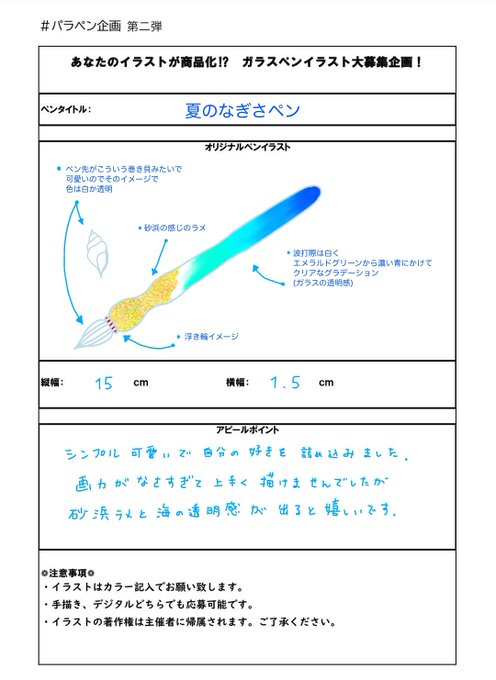 #パラペン企画 第二弾
あなたのイラストが商品化!? ガラスペンイラスト大募集企画！
ペンタイトル：
夏のなぎさペン
オリジナルペンイラスト
• ペン先がこういう巻き貝みたいで
可愛いのでそのイメージで
色は白か透明
• 砂浜の感じのラメ
• 波打際は白く
エメラルドグリーンから濃い青にかけて
クリアなグラデーション
(ガラスの透明感)
• 浮き輪イメージ
縦幅： 15 cm
横幅： 1.5 cm
アピールポイント
シンプル可愛いで自分の好きを詰め込みました。
画力がなさすぎて上手く描けませんでしたが
砂浜ラメと海の透明感が出ると嬉しいです。
❁注意事項❁
・イラストはカラー記入でお願い致します。
・手描き、デジタルどちらでも応募可能です。
・イラストの著作権は主催者に帰属されます。ご了承ください。